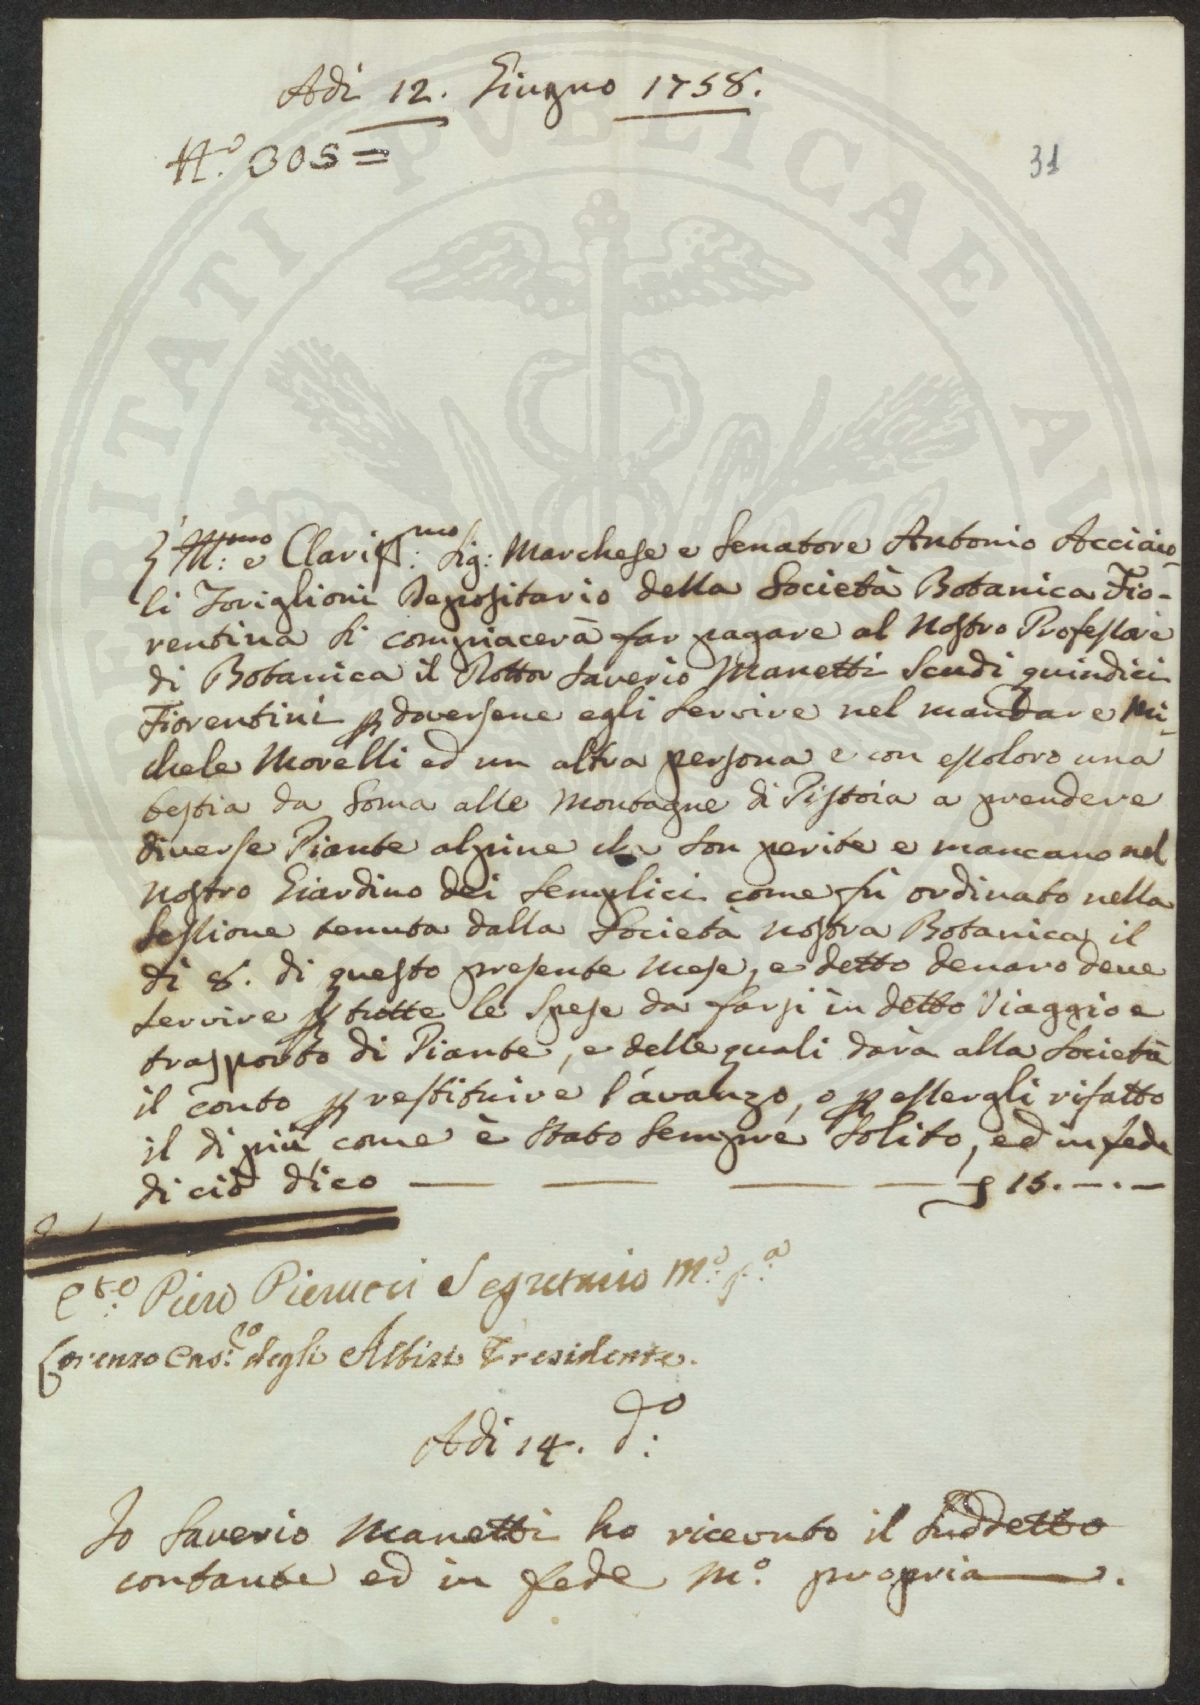 Adì 12. Giugno 1758.
N.o 305=
31
Ill:mo e Clariss:mo Sig: Marchese e Senatore Antonio Acciaio-
li Toriglioni Depositario della Società Botanica Fio-
rentina si compiacerà far pagare al Nostro Professore
di Botanica il Dottor Saverio Manetti Scudi quindici
Fiorentini p doversene egli servire nel mandare Mi-
chele Morelli ed un altra persona e con essoloro una
bestia da Soma alle Montagne di Pistoia a prendere
diverse Piante alpine che son perite e mancano nel
nostro Giardino dei Semplici come fù ordinato nella
Sessione tenuta dalla Società nostra Botanica il
dì 8. di questo presente Mese, e detto denaro deve
servire p tutte le Spese da farsi in detto Viaggio e
trasporto di Piante, e delle quali darà alla Società
il conto p restituire l'avanzo, o p essergli rifatto
il di più come è stato sempre solito, ed in fede
di ciò dico — — — — 15.—.—
Piero Pierucci Segretario M:o p:a
Lorenzo degli Albizi Presidente.
Adì 14. d:o
Io Saverio Manetti ho ricevuto il suddetto
contante ed in fede M:o propria.
VERITATI PVBLICAE